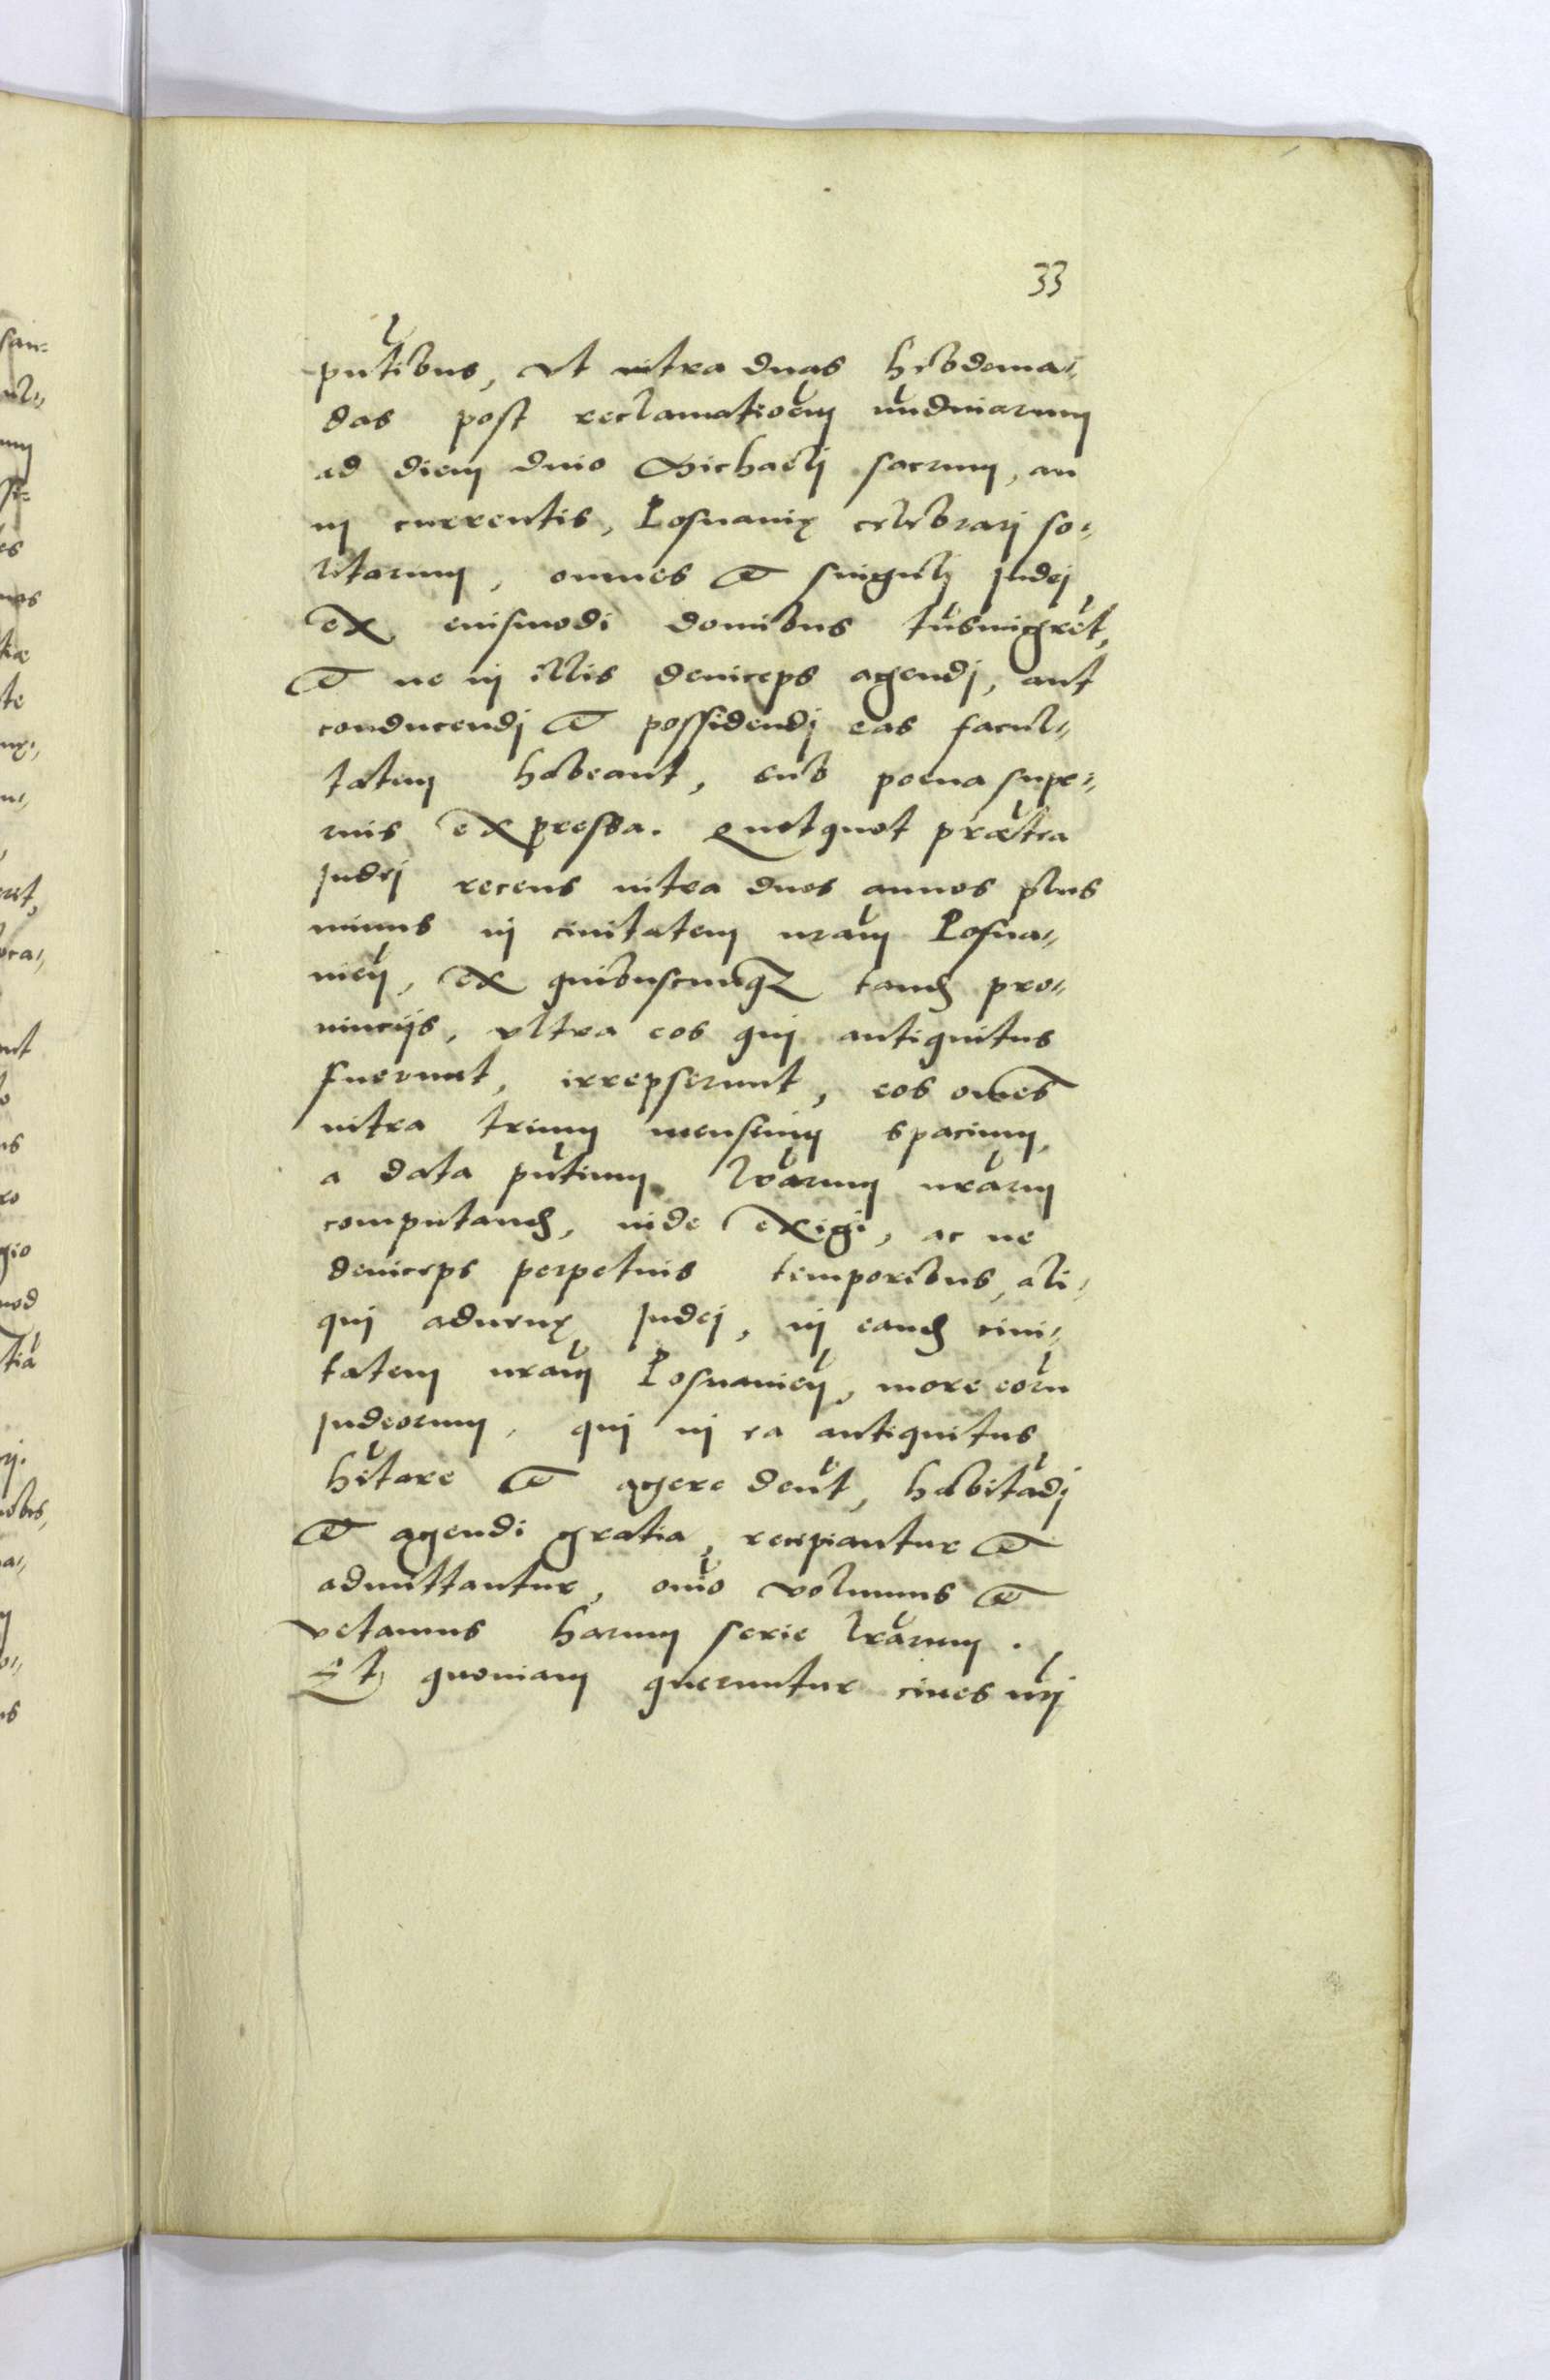 33
pñtibus, vt intra duas hebdoma„
das post reclamationem nundinarum
ad diem diuo Michaeli sacrum, an
ni currentis, Posnanię celebrari so„
litarum, omnes et singuli Judei
ex eiusmodi domibus tñsmigrẽt,
et ne in illis deinceps agendi, aut
conducendi et possidendi eas facul„
tatem habeant, sub poena supe„
rius expressa. Quotquot prætea
Judei recens intra duos annos plus
minus in ciuitatem nrãm Posna„
nieñ, ex quibuscunqz tandem pro„
uincijs, vltra eos qui antiquitus
fuerunt, irrepserunt, eos omẽs
intra trium mensium spacium
a data pñtium lrãrum nrãrum
computandum, inde exigi, ac ne
deinceps perpetuis temporibus, ali„
qui aduenę Judei, in eandem ciui„
tatem nrãm Posnanieñ, more eoru
Judeorum, qui in ea antiquitus
hĩtare et agere deñt, habitãdi
et agendi gratia, recipiantur et
admittantur, omĩo volumus et
vetamus harum serie lrãrum.
Et quoniam queruntur ciues nrĩ